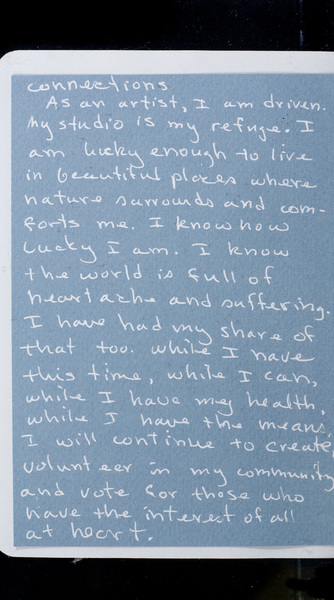 connections
As an artist, I am driven.
My studio is my refuge. I
am lucky enough to live
in beautiful places where
nature surrounds and com-
forts me. I know how
lucky I am. I know
the world is full of
heartache and suffering.
I have had my share of
that too. while I have
this time, while I can,
while I have my health,
while I have the means,
I will continue to create,
volunteer in my community
and vote for those who
have the interest of all
at heart.